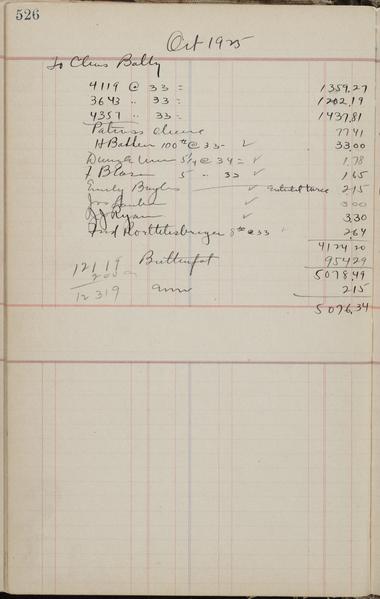 526
Oct 1925
To Chas Bally
4119 @ 33 = 1359.27
3643 " 33 = 1202.19
4357 " 33 = 1437.81
Patrons cheese 77.41
H Batten 100 @ 33 - ✓ 33.00
5 1/4 @ 34 = ✓ 1.78
5 " 33 ✓ 1.65
Emily ✓ 2.15
Jos ✓ 3.00
Ryan ✓ 3.30
Fred 8 @ 33 ✓ 2.64
4124.20
Butterfat 954.29
5078.49
2.15
5076.34
12119
200
12319